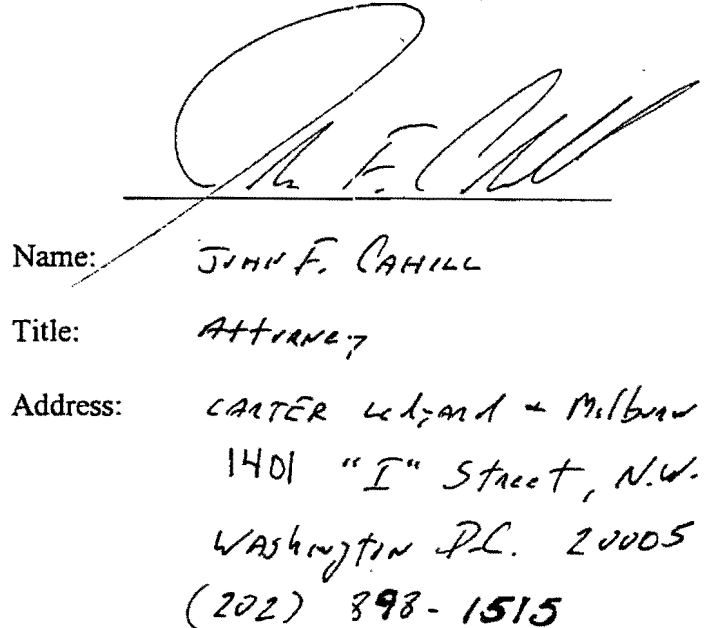 John F. Cahill
Name: JOHN F. CAHILL
Title: Attorney
Address: CARTER Ledyard + Milburn
1401 "I" Street, N.W.
Washington D.C. 20005
(202) 898-1515